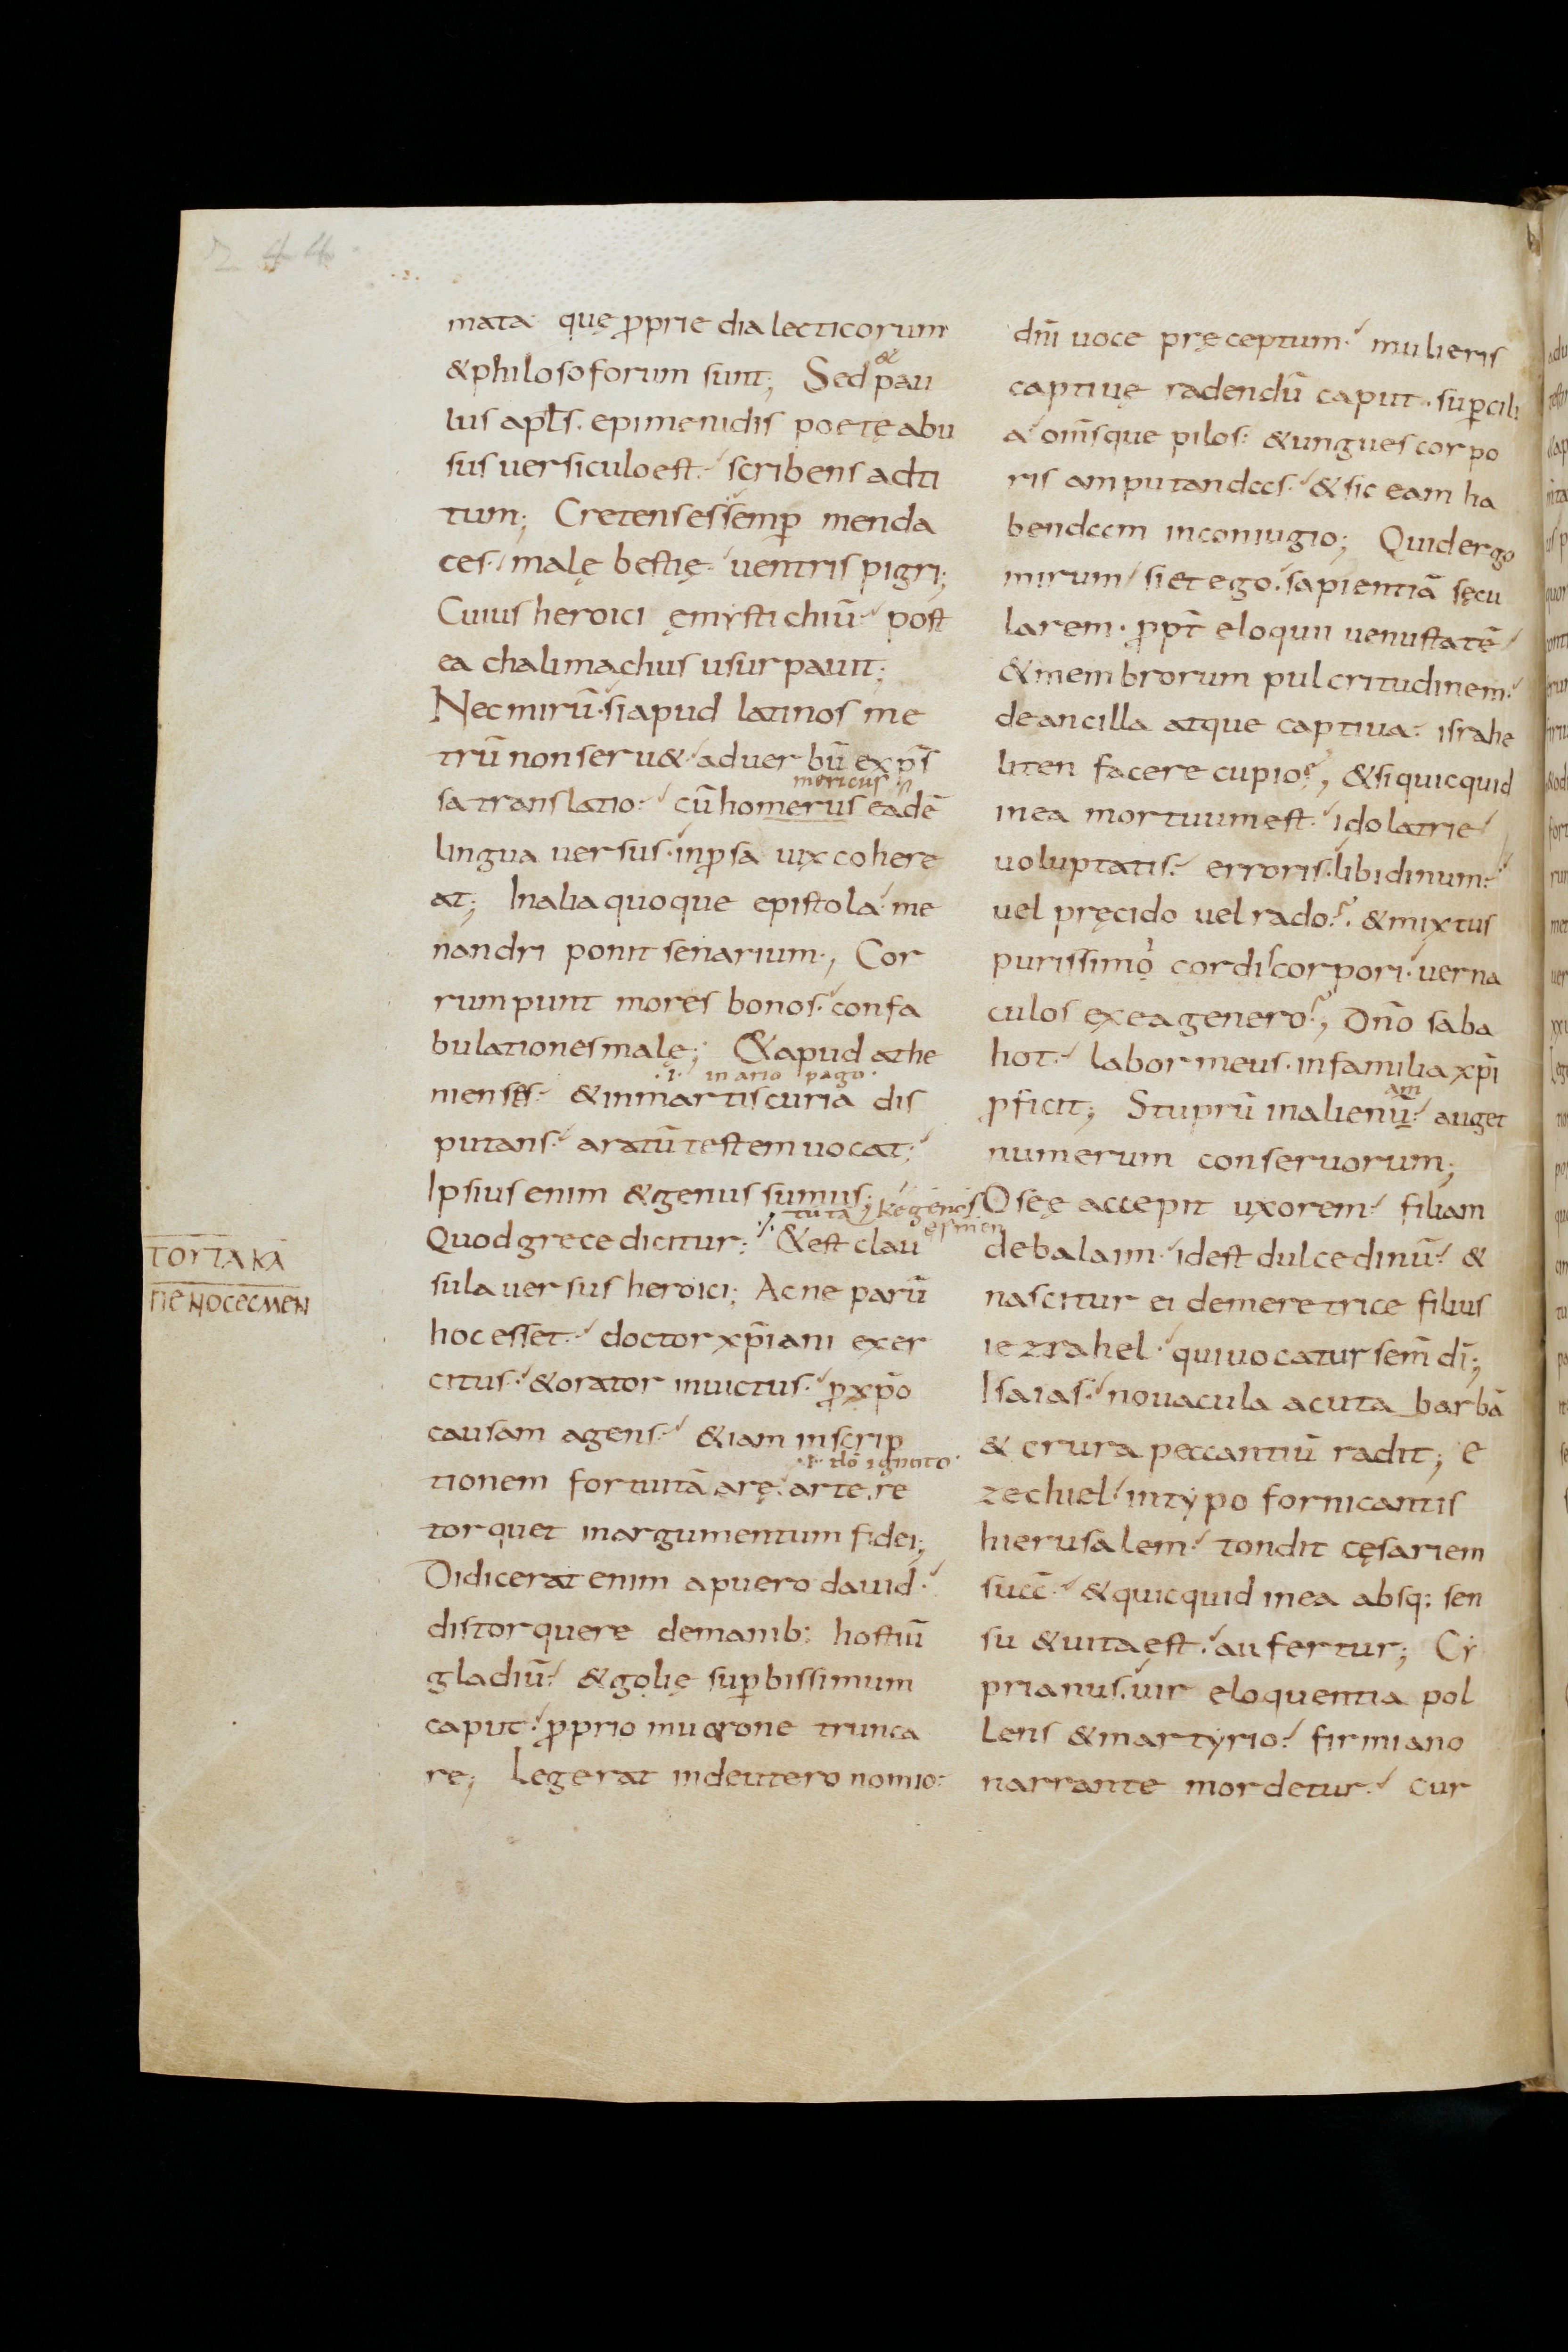 244
mata quę ꝓprie dialecticorum
& philosoforum sunt; Sed &
pau
lus apłs. epimenidis poetę abu
sus uersiculo est. scribens ad ti
tum; Cretenses semꝑ menda
ces. malę bestię. uentris pigri;
Cuius heroici ęmystichiū. post
ea chalimachus usurpauit;
Nec mirū. si apud latinos me
trū non seru&. ad uerbū exp̄s
mericus
sa translatio. cū homerus eadē
lingua uersus. in ꝓsa uix cohere
at; In alia quoque epistola. me
nandri ponit senarium., Cor
rumpunt mores bonos. confa
bulationes malę; & apud athe
.i. in ario pago.
nienses. & in martis curia dis
putans. aratū testem uocat;
Ipsius enim & genus sumus;
tutā ke genos
esmen
Quod grece dicitur; & est clau
ΤΟΥΤΑΚΑ
ΠΕΝΟϹΕϹΜΕΝ
sula uersus heroici; Ac ne parū
hoc esset. doctor xp̄iani exer
citus. & orator inuictus. ꝓ xp̄o
causam agens. &iam inscrip
.i. dō ignoto.
tionem fortuitā arę. arte. re
torquet in argumentum fidei;
Didicerat enim a puero dauid.
distorquere de manib; hostiū
gladiū. & golię suꝑbissimum
caput. ꝓprio mucrone trunca
re; Legerat in deuteronomio.
dn̄i uoce pręceptum. mulieris
captiuę radendū caput. suꝑcili
a om̄sque pilos. & ungues corpo
ris amputandos. & sic eam ha
bendam in coniugio; Quid ergo
mirum si et ego. sapientiā sęcu
larem. ꝓpt̄ eloquii uenustatē
& membrorum pulcritudinem.
de ancilla atque captiua. israhe
liten facere cupio?, & si quicquid
in ea mortuum est. idolatrie
uoluptatis. erroris. libidinum.
uel pręcido uel rado?. & mixtus
purissimo cordis corpori. uerna
culos ex ea genero?, Dn̄o saba
hot. labor meus. in familia xp̄i
am
ꝓficit; Stuprū in alienū. auget
numerum conseruorum;
Oseę accepit uxorem. filiam
debalaim. id est dulcedinū. &
nascitur ei de meretrice filius
iezrahel. qui uocatur sem̄ dī;
Isaias. nouacula acuta barbā
& crura peccantiū radit; e
zechiel. in typo fornicantis
hierusalem. tondit cęsariem
suā. & quicquid in ea absq; sen
su & uita est. aufertur; Cy
prianus. uir eloquentia pol
lens & martyrio. firmiano
narrante mordetur. cur